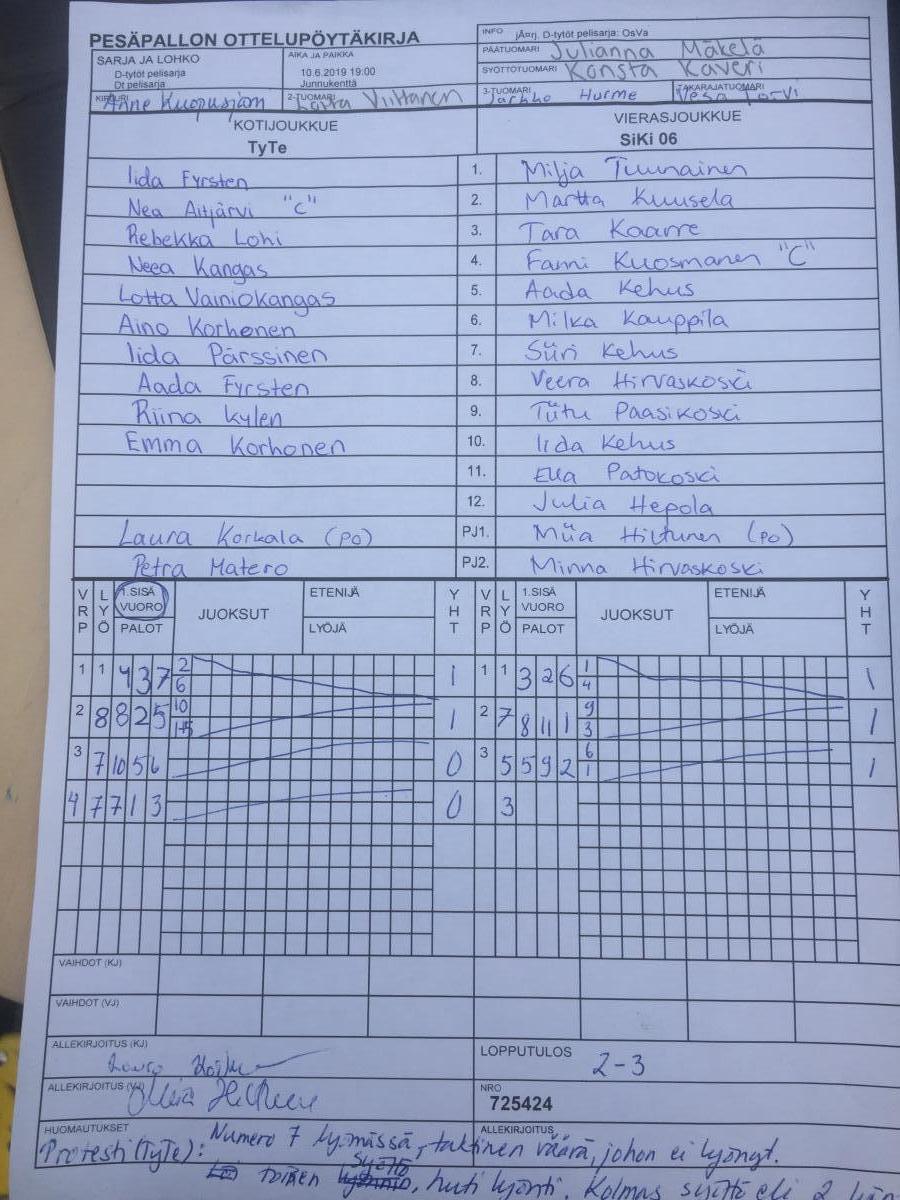 PESÄPALLON OTTELUPÖYTÄKIRJA
INFO jÄ¤rj. D-tytöt pelisarja: OsVa
PÄÄTUOMARI Julianna Mäkelä
SARJA JA LOHKO
D-tytöt pelisarja
Dt pelisarja
AIKA JA PAIKKA
10.6.2019 19:00
Junnukenttä
SYÖTTÖTUOMARI Konsta Kaveri
KIRJURI Anne
2-TUOMARI Viittanen
3-TUOMARI Jarkko Hurme
TAKARAJATUOMARI Vesa
KOTIJOUKKUE
TyTe
VIERASJOUKKUE
SiKi 06
Iida Fyrsten 1. Milja Tuunainen
Nea Aitjärvi "C" 2. Martta Kuusela
Rebekka Lohi 3. Tara Kaarre
Neea Kangas 4. Fanni Kuosmanen "C"
Lotta Vainiokangas 5. Aada Kehus
Aino Korhonen 6. Milka Kauppila
Iida Pärssinen 7. Siiri Kehus
Aada Fyrsten 8. Veera Hirvaskoski
Riina Kylen 9. Tiitu Paasikoski
Emma Korhonen 10. Iida Kehus
11. Ella Patokoski
12. Julia Hepola
Laura Korkala (PO) PJ1. Miia Hiltunen (PO)
Petra Matero PJ2. Minna Hirvaskoski
VRP LYÖ 1.SISÄ VUORO PALOT JUOKSUT ETENIJÄ LYÖJÄ YHT VRP LYÖ 1.SISÄ VUORO PALOT JUOKSUT ETENIJÄ LYÖJÄ YHT
1 1 4 3 7 2 6 1 1 1 3 2 6 1 4 1
2 8 8 2 5 10 1 2 7 8 11 1 9 3 1
3 7 10 5 6 0 3 5 5 9 2 6 1 1
4 7 7 1 3 0 3
VAIHDOT (KJ)
VAIHDOT (VJ)
ALLEKIRJOITUS (KJ)
LOPPUTULOS 2-3
ALLEKIRJOITUS (VJ)
NRO
725424
HUOMAUTUKSET
ALLEKIRJOITUS
Protesti (TyTe): Numero 7 lyömässä, taktinen väärä, johon ei lyönyt.
toinen syöttö, huti lyönti. Kolmas syöttö eli 2.